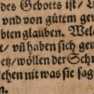 des Gebotts ist/
und von gûtem gew
bten glauben. Wel
/ vñ haben sich ge
ey/wöllen der Sch
ehen nit was sie sag